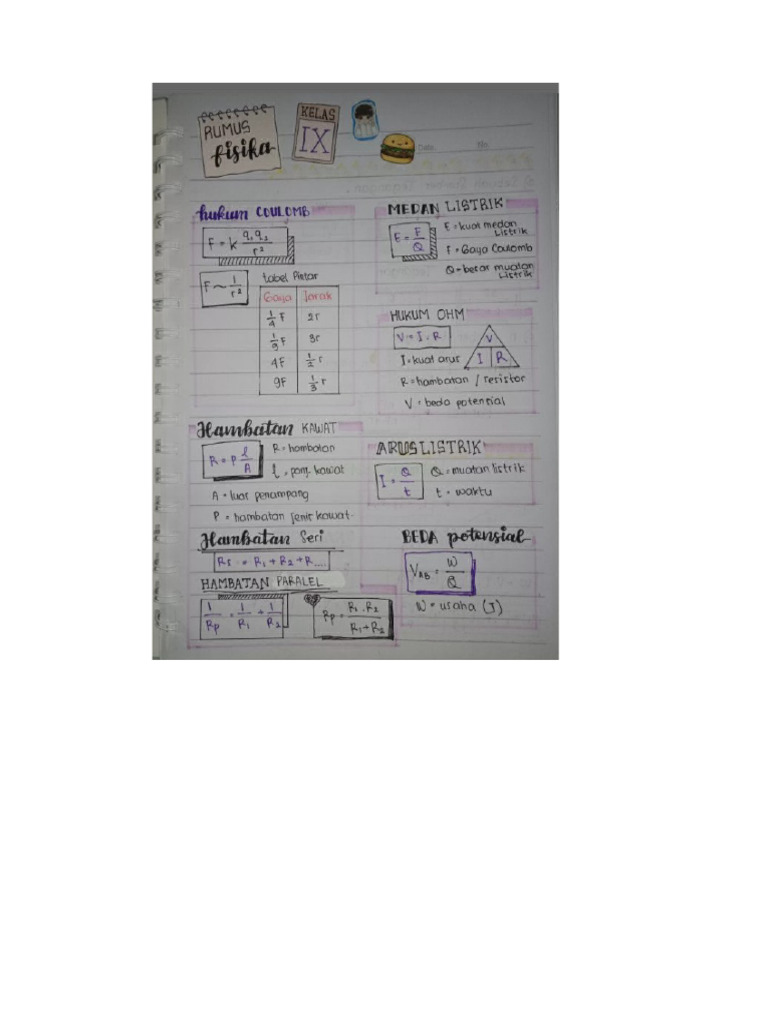 RUMUS
fisika
KELAS
IX
Date.
No.
hukum COULOMB
F = k q₁ q₂ / r²
F ~ 1 / r²
tabel Pintar
Gaya Jarak
1/4 F 2r
1/9 F 3r
4F 1/2 r
9F 1/3 r
MEDAN LISTRIK
E = F / Q
E = kuat medan Listrik
F = Gaya Coulomb
Q = besar muatan Listrik
HUKUM OHM
V = I . R
V
I R
I = kuat arus
R = hambatan / resistor
V = beda potensial
Hambatan KAWAT
R = ρ l / A
R = hambatan
l = panj. kawat
A = luas penampang
ρ = hambatan jenis kawat
ARUS LISTRIK
I = Q / t
Q = muatan listrik
t = waktu
Hambatan Seri
Rs = R₁ + R₂ + R....
HAMBATAN PARALEL
1 / Rp = 1 / R₁ + 1 / R₂
Rp = R₁ . R₂ / R₁ + R₂
BEDA potensial
V_AB = W / Q
W = usaha (J)